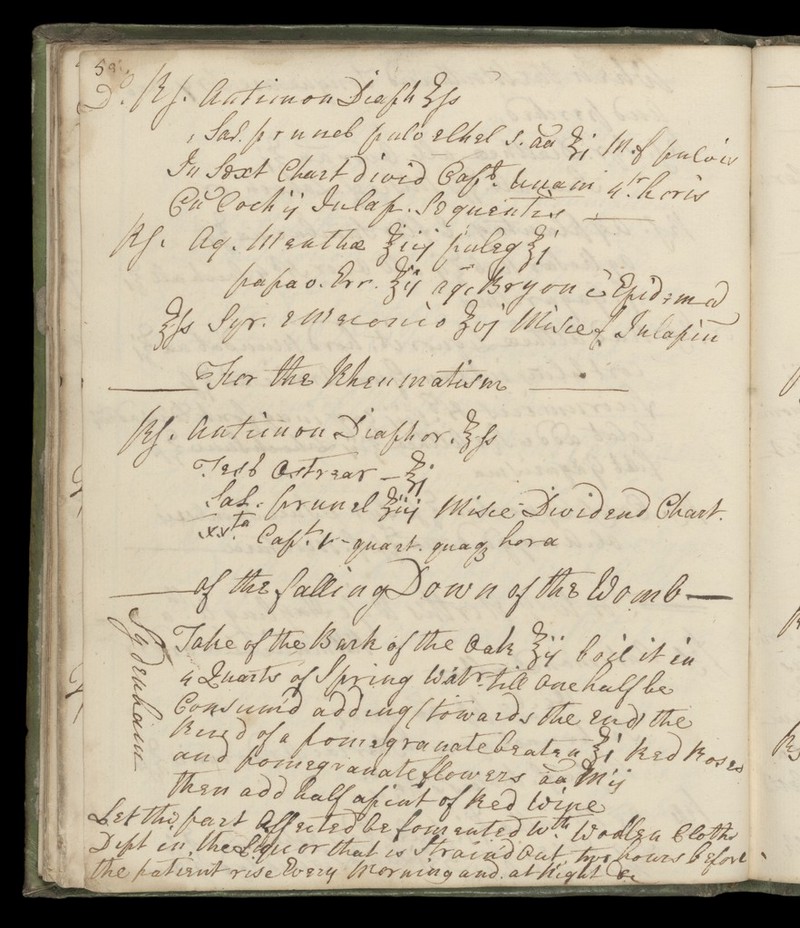 58
D.o Rx. Antimon Diaph ℥ss
Sal. prunel pulv elhel s. aa ʒj M.f pulvis
In Sext Chart divid Capt. Unam 4.tr horis
Cu Coch ij Julap. Sequentis
Rx. Aq. Menthæ ℥iij puleg ℥j
papav. Err. ℥ij aq. Bryon c Epidem a
℥ss Syr. e Meconio ʒvj Misce f Julapiu
For the Rheumatism
Rx. Antimon Diaphor. ℥ss
Test Ostrear - ʒj
Sal. prunel ʒiij Misce Dividend Chart.
xv.ta Capt. j - quart. quaq hora
of the falling Down of the Womb
Sydenham
Take of the Bark of the Oak ℥ij boil it in
4 Quarts of Spring Watr. till one half be
Consum'd adding (towards the end) the
Rind of a pomegranate beaten ℥j Red Roses
and pomegranate flowers aa Mij
then add half a pint of Red Wine
Let the part Affected be fomented wth Wollen Cloths
Dipt in the Liquor that is Strain'd out two hours before
the patient rise Every Morning and at Night &c